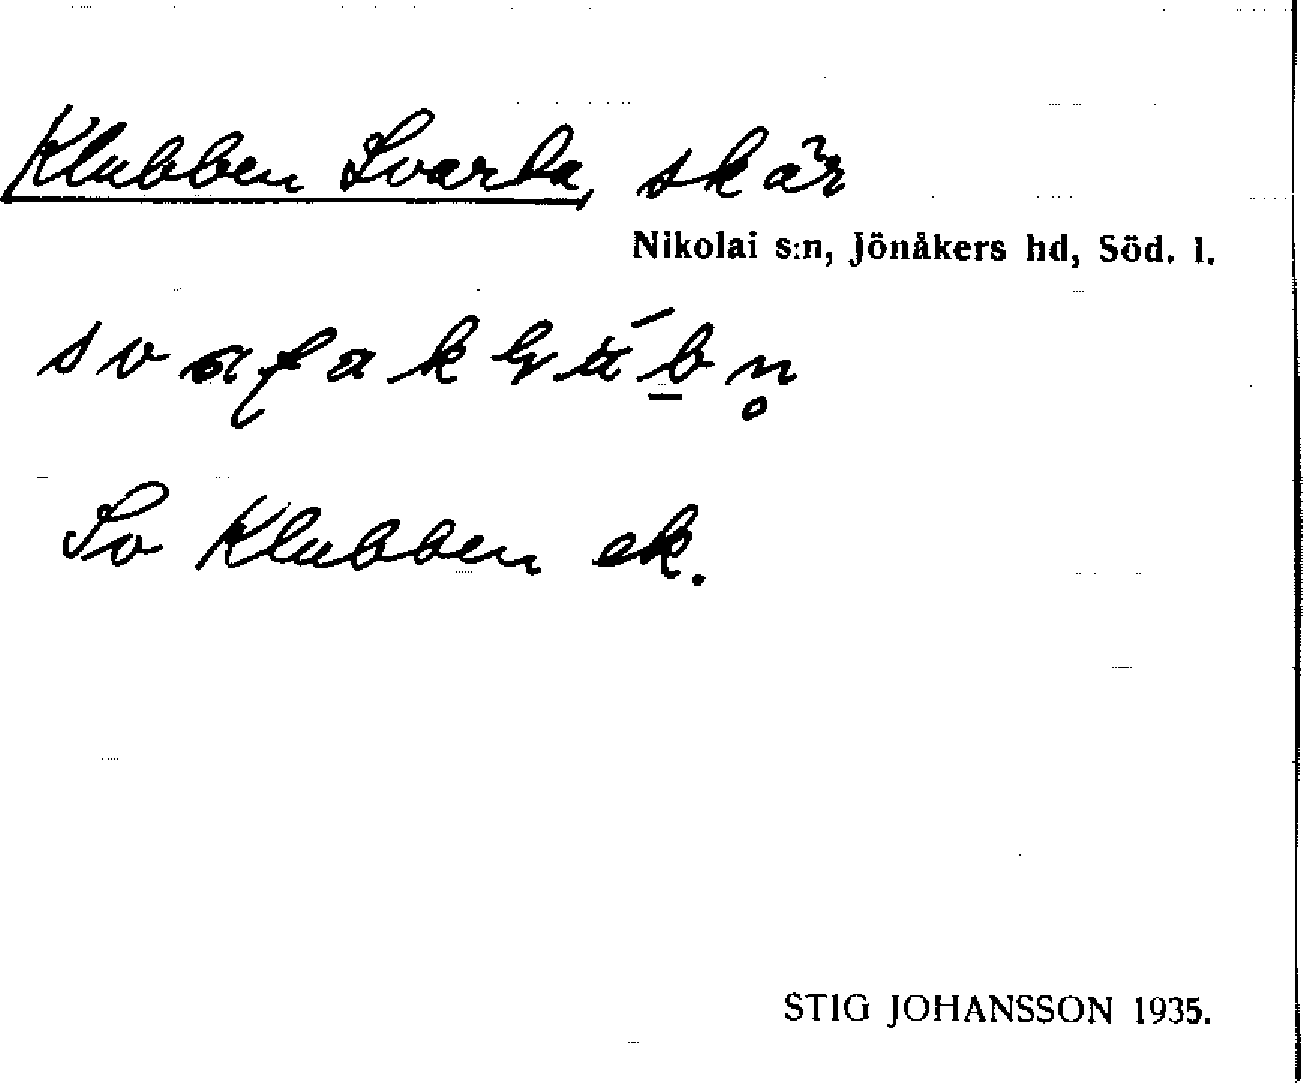 Klubben Svarta, skär
Nikolai s:n, Jönåkers hd, Söd. l.
Sv Klubben ek.
STIG JOHANSSON 1935.